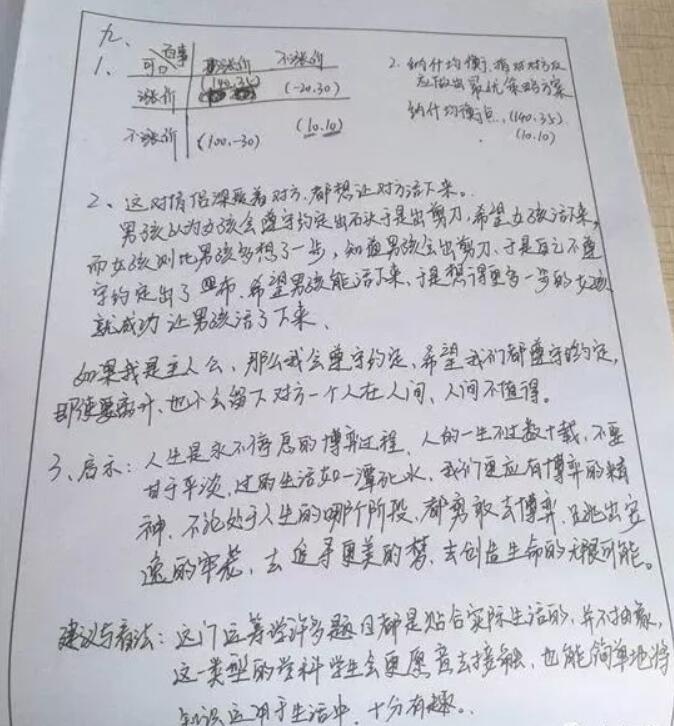 九、
1、 可口 百事 涨价 不涨价
涨价 (140.35) (-20.30)
不涨价 (100.-30) (10.10)
2. 纳什均衡,指对对方反
应做出最优策略方案
纳什均衡点,(140.35).
(10.10)
2、这对情侣深爱着对方,都想让对方活下来。
男孩认为女孩会遵守约定出石头于是出剪刀,希望女孩活下来,
而女孩则比男孩多想了一步,知道男孩会出剪刀、于是自己不遵
守约定出了布、希望男孩能活下来、于是想得更多一步的女孩
就成功让男孩活了下来、
如果我是主人公、那么我会遵守约定、希望我们都遵守约定,
即使要离开、也不会留下对方一个人在人间、人间不值得。
3、启示:人生是永不停息的博弈过程,人的一生不过数十载,不要
甘于平淡,过的生活如一潭死水,我们更应有博弈的精
神、不论处于人生的哪个阶段、都勇敢去博弈,跳出安
逸的牢笼、去追寻更美的梦、去创造生命的无限可能。
建议与看法:这门运筹学许多题目都是贴合实际生活的,并不抽象,
这一类型的学科学生会更愿意去接触、也能简单地将
知识运用于生活中,十分有趣。